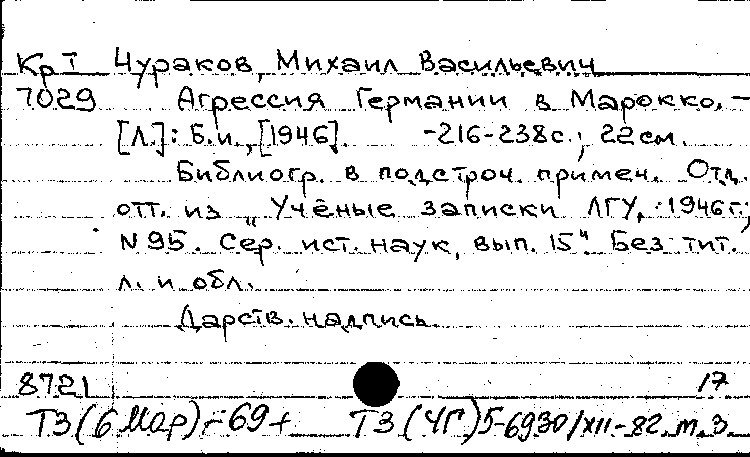 Кр Т Чураков, Михаил Васильевич
7029 Агрессия Германии в Марокко. –
[Л.]: Б.и., [1946]. -216-238с.; 22см.
Библиогр. в подстроч. примеч. Отд.
отт. из „Учёные записки ЛГУ, 1946г.,
N95. Сер. ист. наук, вып. 15". Без тит.
л. и обл.
Дарств. надпись.
8721 17
ТЗ (6 Мар) -69+ ТЗ (ЧГ) 5-6930/XII-82. т. 3.